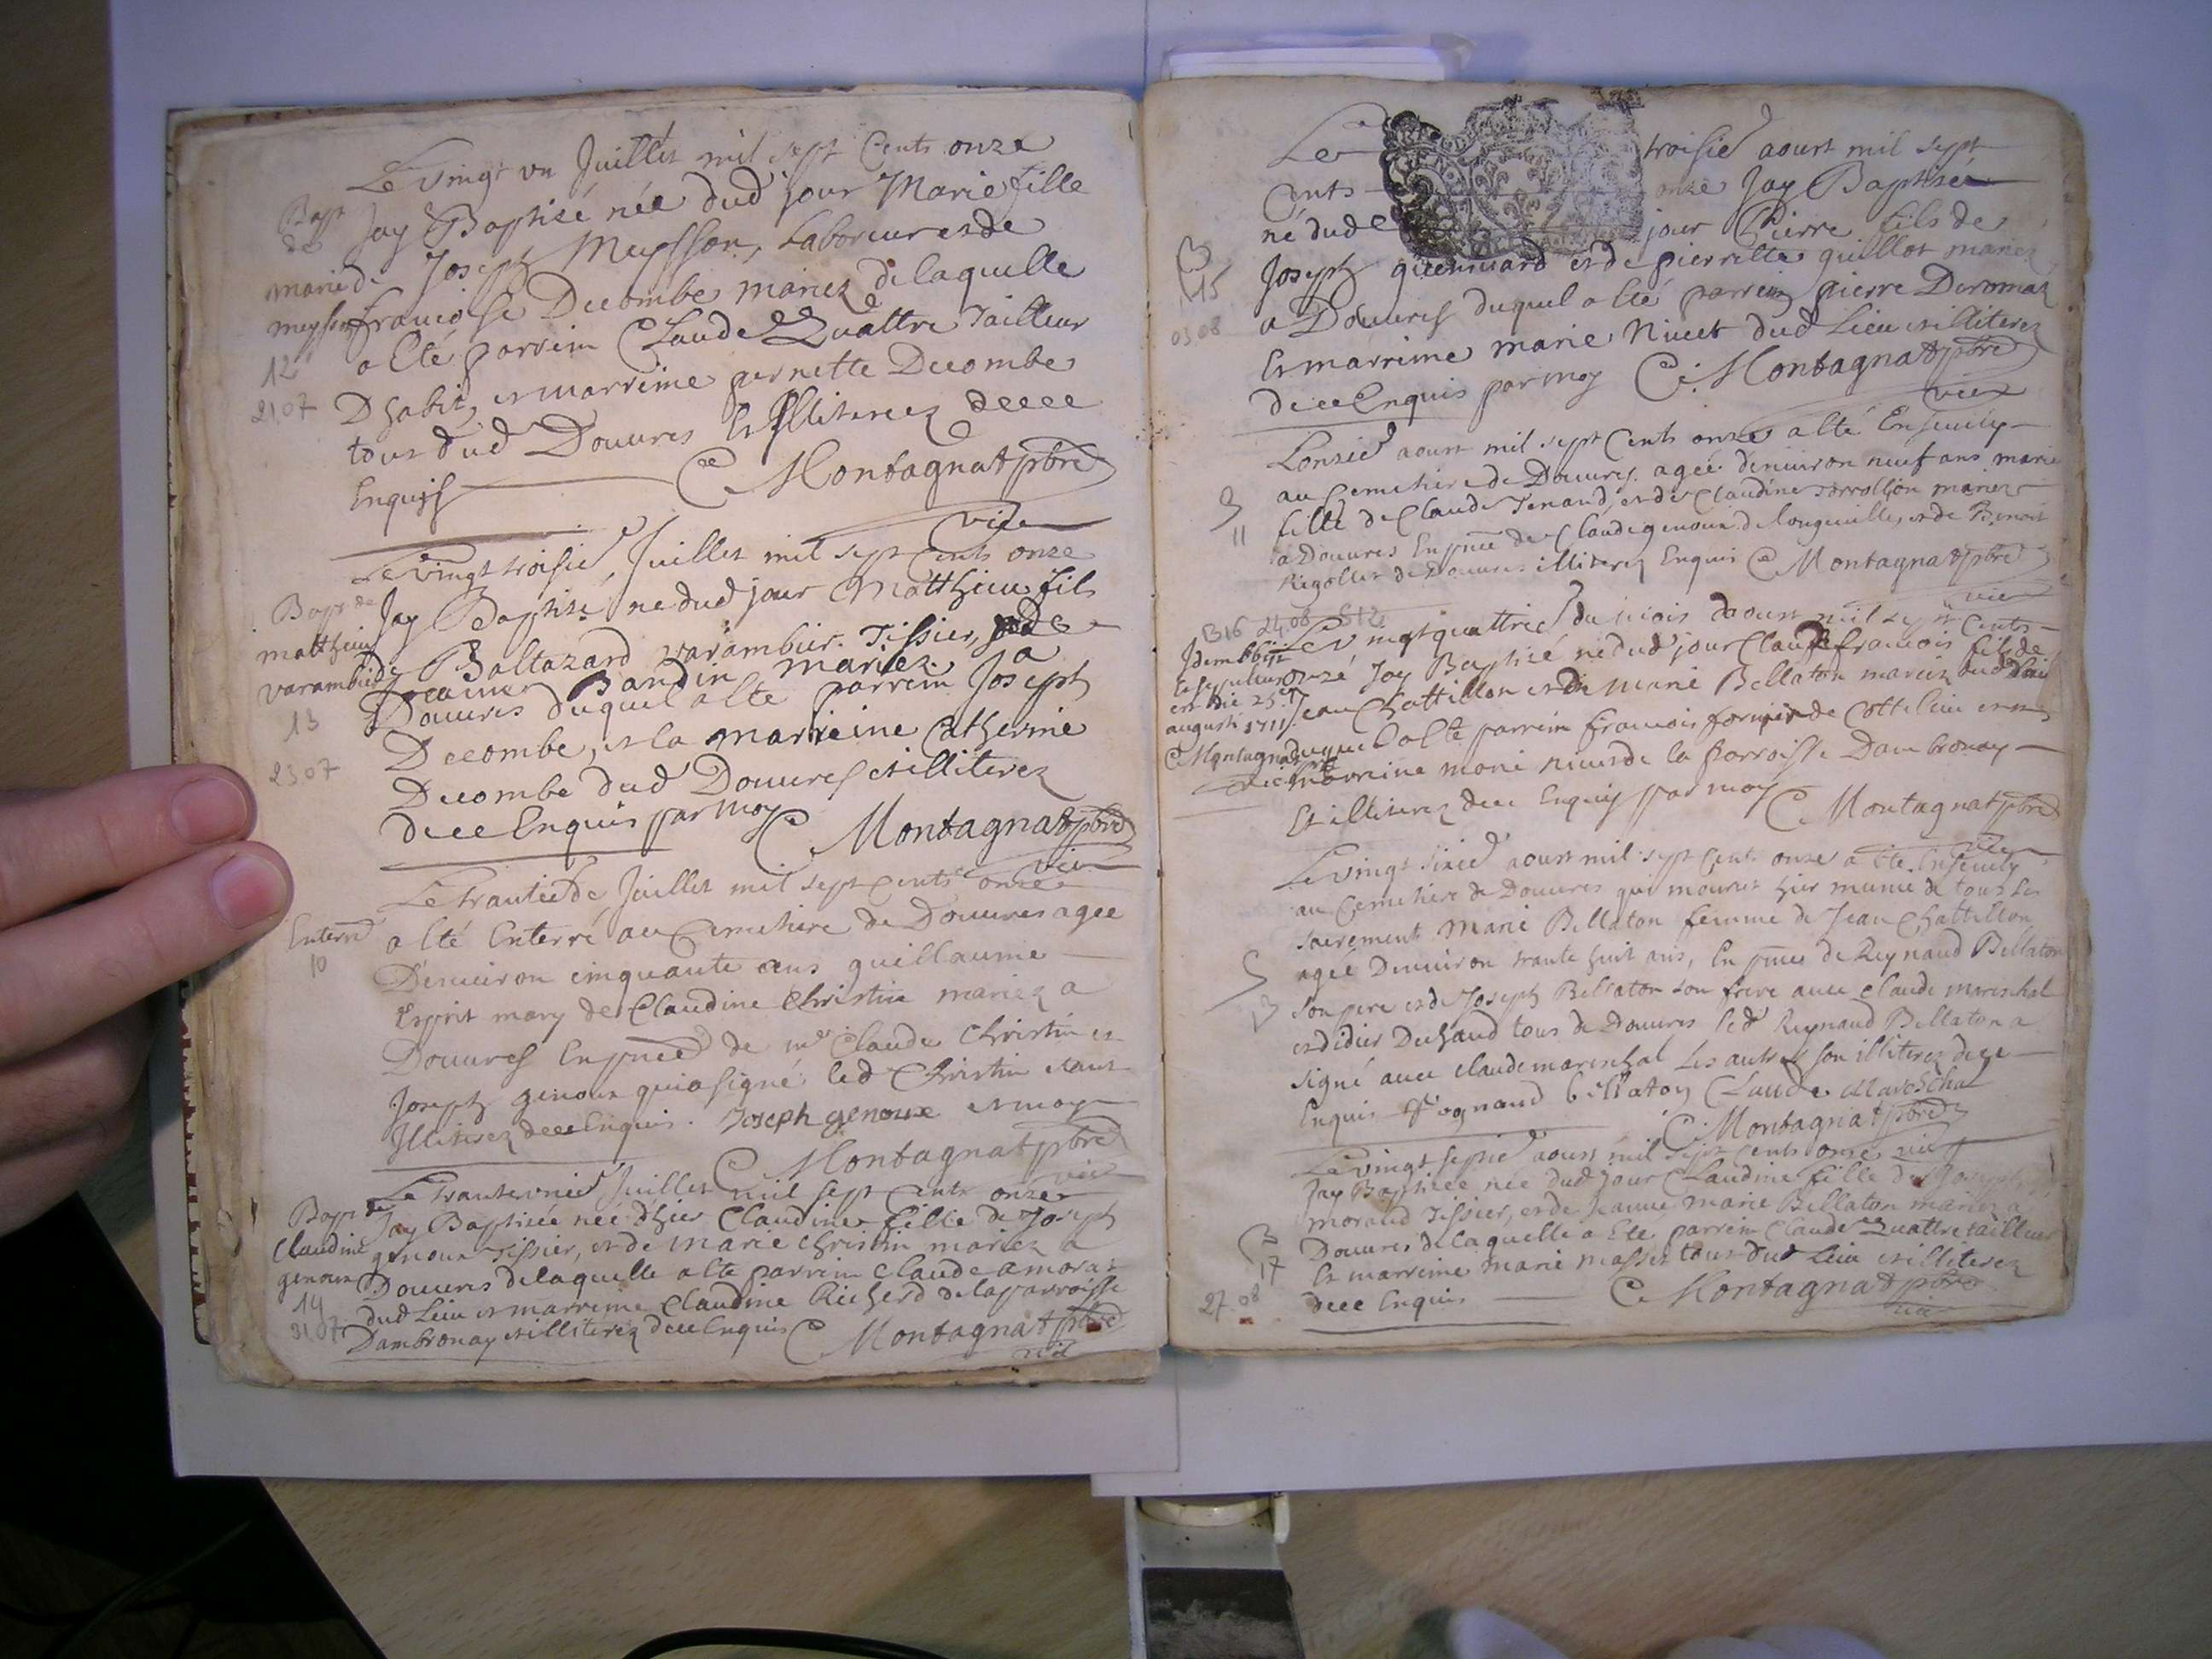 Le vingt vn Juillet mil sept Cents onze
Bapt
de
Jay Baptisé née dud jour Marie fille
marie
de Joseph Meysson, Laboreur et de
meysson
francoise Decombe mariez de laquelle
12
a Eté parrein Claude Quattre Tailleur
21 07
Dhabit, et marreine pernette Decombe
tous dud Douures Et Illiterez dece
Enquis
C Montagnat pbre
vice
Le vingt troisie Juillet mil sept Cents onze
Bapt de
Jay Baptisé ne dud jour Matthieu fils
matthieu
varambier
de Baltazard varambier Tissier, et de
Bandin mariez a
13
Douures duquel a Eté parrein Joseph
Decombe, et la marreine Catherine
23 07
Decombe dud Douures et illiterez
dece Enquis par moy C Montagnat pbre
vice
Le trantie de Juillet mil sept Cents onze
Enterre
a Eté Enterré au Cemetiere de Douures agee
10
Denuiron cinquante ans guillaume
Esprit mary de Claudine Christin mariez a
Douures En pnce de mr Claude Christin et
Joseph genoux qui a signé led Christin etant
Illiterez dece Enquis. Joseph genoux et moy
C Montagnat pbre
vice
Le trantevnie Juillet mil sept Cents onze
Bapt de
Jay Baptisée née dhier Claudine fille de Joseph
Claudine
genoux Tissier, et de marie christin mariez a
genoux
Douures de laquelle a Eté parrein Claude amoraz
14
dud Lieu et marreine Claudine Richerd de la parroisse
31 07
Dambronay et illiterez dece Enquis C Montagnat pbre
vice
Le troisie aoust mil sept
Cents onze Jay Baptisé
né dud jour Pierre fils de
B
15
Joseph et de pierrette guillot mariez
03 08
a Douures duquel a Eté parrein pierre Deromaz
Et marreine marie Niuet dud Lieu et illiterez
dece Enquis par moy C. Montagnat pbre
vice
Lonzie aoust mil sept Cents onze a Eté Enseuely
au Cemetiere de Douures agée denuiron neuf ans marie
S
11
fille de Claude Tenand, et de Claudine mariez
a Douures En pnce de Claude genoux de longeuille, et de Benoit
Rigollet de Douures illiterez Enquis C Montagnat pbre
vice
B16 24 08 S12
Le vingt quattrie du mois daoust mil sept Cents
onzé Jay Baptisé né dud jour Claude francois fils de
Jean Chattillon et de Marie Bellaton mariez dud Lieu
die 25
augusti 1711
C Montagnat pbre
vice
duquel a Eté parrein francois fornier de Cottelieu et
marreine marie niuet de la parroisse Dambronay
Et illiterez dece Enquis par moy C Montagnat pbre
vice
Le vingt sixie aoust mil sept Cents onze a Eté Enseuely
au Cemetiere de Douures qui mourut hier munie de tous les
sacrement Marie Bellaton femme de Jean Chattillon
agée Denuiron trante huit ans, En pnce de Reynaud Bellaton
S
13
son pere et de Joseph Bellaton son frere auec Claude mareschal
et didier Duhaud tous de Douures led Reynaud Bellaton a
signé auec claude mareschal Les autres son illiterez dece
Enquis bellaton Claude Mareschal
C Montagnat pbre
vice
Le vingt septie aoust mil sept cents onze
Jay Baptisée née dud jour Claudine fille de Joseph
morand Tissier, et de Jeanne marie Bellaton mariez a
B
17
Douures de laquelle a Eté parrein Claude Quattre tailleur
Et marreine marie masset tous dud Lieu et illiterez
27 08
dece Enquis C Montagnat pbre
vice